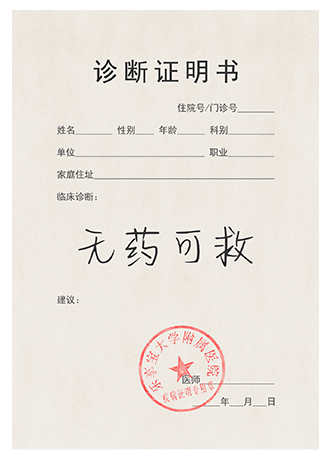 诊断证明书
住院号/门诊号
姓名 性别 年龄 科别
单位 职业
家庭住址
临床诊断：
无药可救
建议：
乐享宝大学附属医院
疾病证明专用章
医师
年 月 日